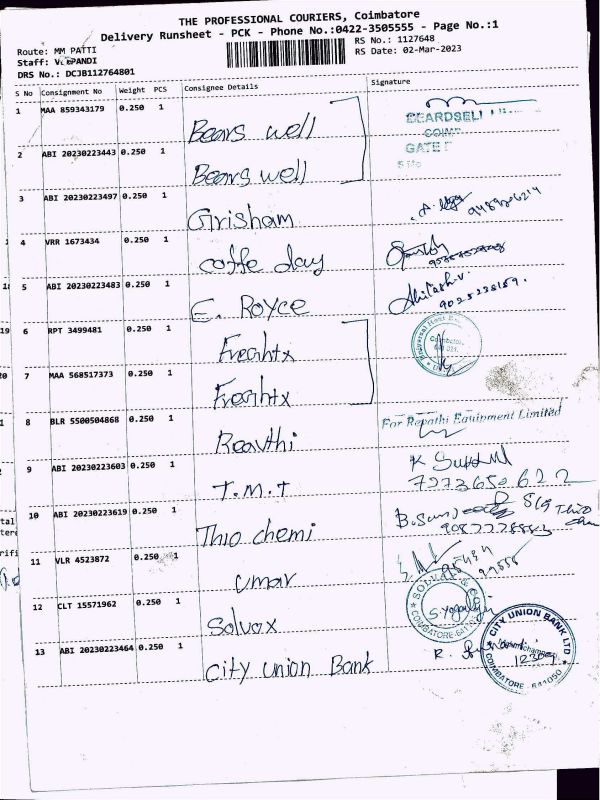 THE PROFESSIONAL COURIERS, Coimbatore
Delivery Runsheet - PCK - Phone No.:0422-3505555 - Page No.:1
Route: MM PATTI
RS No.: 1127648
Staff:
RS Date: 02-Mar-2023
DRS No.: DCJB112764801
S No Consignment No Weight PCS Consignee Details Signature
1 MAA 859343179 0.250 1 Bears well
BEARDSELL
GATE
2 ABI 20230223443 0.250 1 Bears well
3 ABI 20230223497 0.250 1 Grisham
4 VRR 1673434 0.250 1 coffe day
5 ABI 20230223483 0.250 1 E. ROYCE
Abilash.v.
6 RPT 3499481 0.250 1 Freightx
7 MAA 568517373 0.250 1 Freightx
8 BLR 5500504868 0.250 1 Revthi
For Revathi Equipment Limited
9 ABI 20230223603 0.250 1 T.M.T
7373650622
10 ABI 20230223619 0.250 1 Thio chemi
11 VLR 4523872 0.250 1 Umar
12 CLT 15571962 0.250 1 Solvox
COIMBATORE
13 ABI 20230223464 0.250 1 City Union Bank
CITY UNION BANK LTD
COIMBATORE - 641050